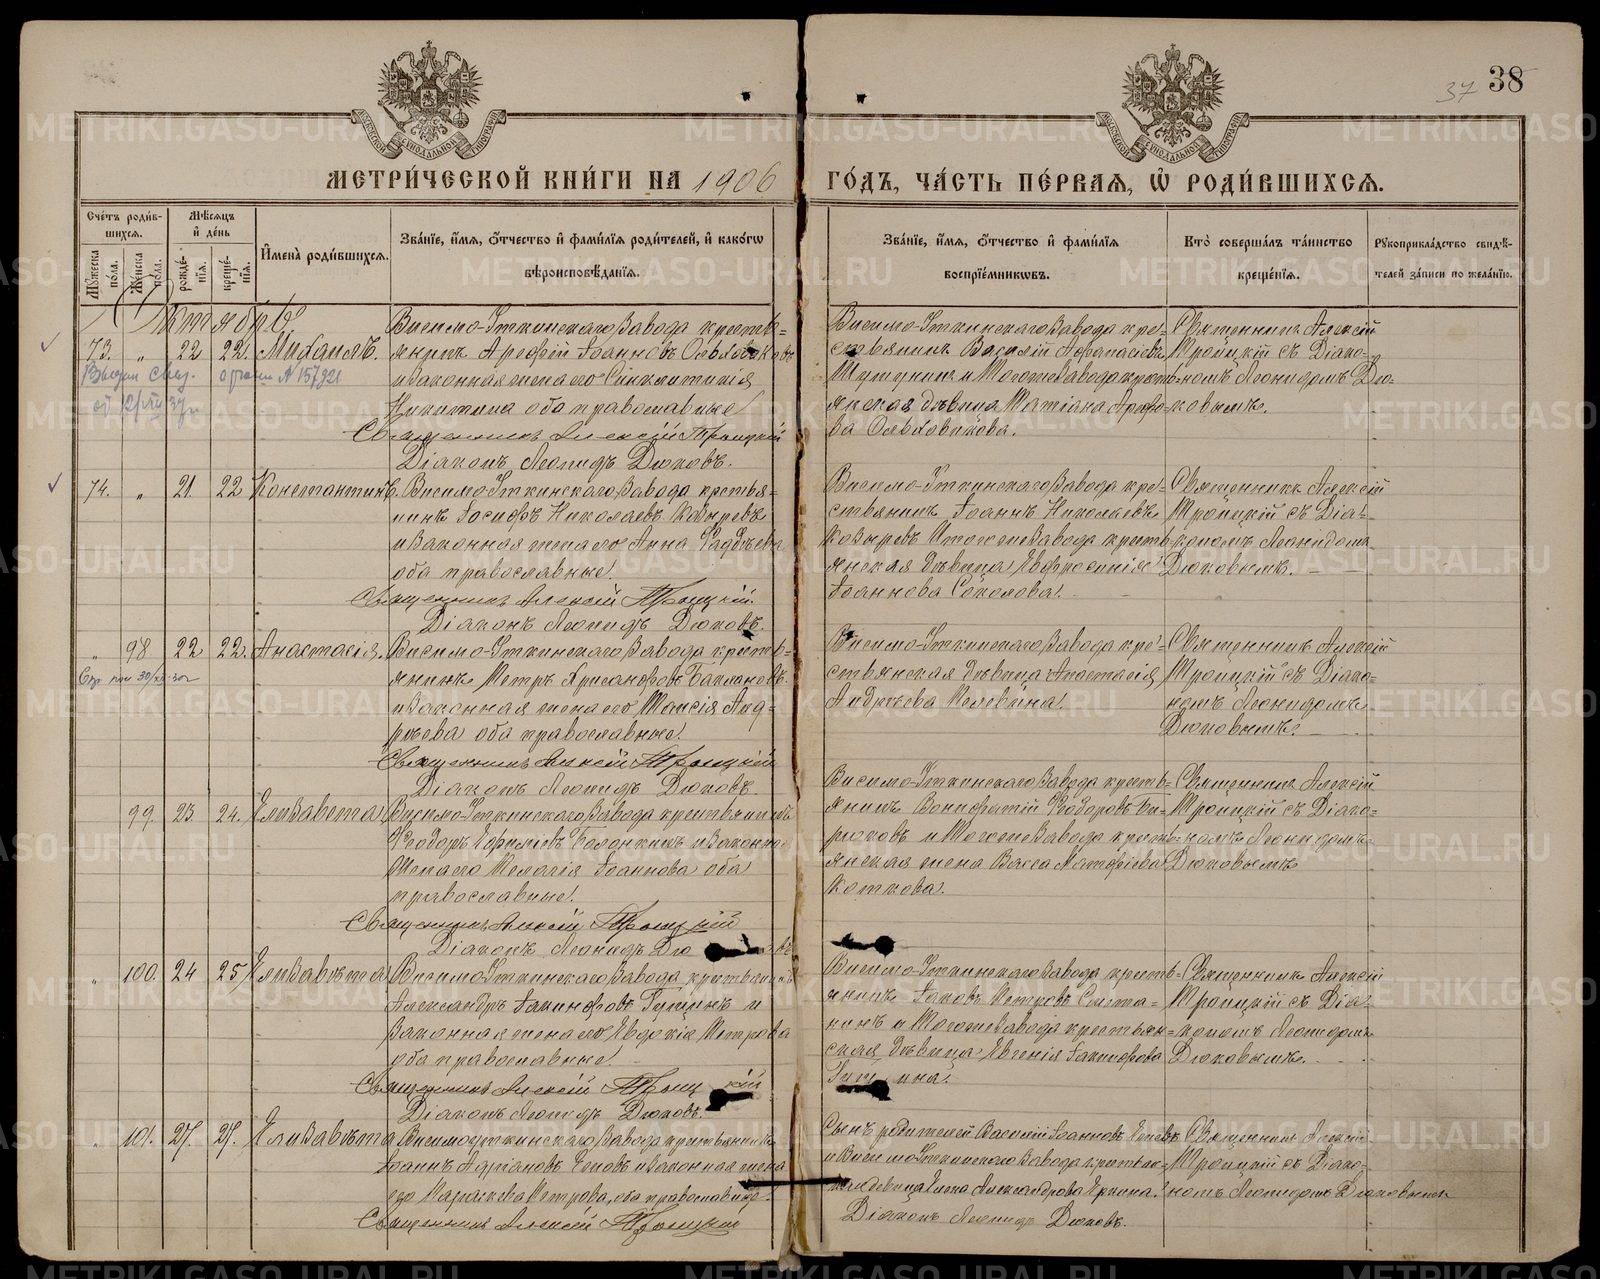 37 38
МЕТРИ́ЧЕСКОЙ КНИ́ГИ НА 1906 ГО́ДЪ, ЧА́СТЬ ПЕ́РВАЯ, Ѡ҆ РОДИ́ВШИХСЯ.
Сче́тъ роди́вшихся.
Мꙋ́жеска по́ла.
Же́нска по́ла.
Мѣ́сяцъ и҆ де́нь
рожде́нїя.
креще́нїя.
И҆мена̀ роди́вшихся.
Зва́нїе, и҆́мя, ѻ҆́тчество и҆ фами́лїя роди́телей, и҆ како́гѡ
вѣроисповѣ́данїя.
Зва́нїе, и҆́мя, ѻ҆́тчество и҆ фами́лїя
воспрїе́мникѡвъ.
Кто̀ соверша́лъ та́инство
креще́нїя.
Рꙋкоприкла́дство свидѣ́-
телей за́писи по жела́нїю.
Октябрь
73. " 22 22. Михаилъ.
Висимо-Уткинскаго Завода кресть=
янинъ Арефій Іоанновъ Ольховиковъ
и законная жена его Синклитикія
Никитина оба православные
Священникъ Алексій Троицкій
Діаконъ Леонидъ Дюковъ.
Висимо-Уткинскаго Завода кре=
стьянинъ Василій Афанасіевъ
и тогоже Завода кресть-
янская дѣвица Татіана Арефо-
ва Ольховикова.
Священникъ Алексій
Троицкій съ Діако-
номъ Леонидомъ Дю-
ковымъ.
74. " 21. 22 Константинъ.
Висимо-Уткинскаго Завода крестья-
нинъ Іосифъ Николаевъ Козыревъ
и законная жена его Анна Фаддѣева
оба православные.
Священникъ Алексій Троицкій
Діаконъ Леонидъ Дюковъ.
Висимо-Уткинскаго Завода кре=
стьянинъ Іоаннъ Николаевъ
Козыревъ и тогоже Завода кресть-
янская дѣвица Евфросинія
Іоаннова Соколова.
Священникъ Алексій
Троицкій съ Діа-
кономъ Леонидомъ
Дюковымъ.
" 98 22 22. Анастасія.
Висимо-Уткинскаго Завода кресть-
янинъ Петръ Хрисанфовъ Баклановъ
и законная жена его Таисія Анд-
реева оба православные.
Священникъ Алексій Троицкій
Діаконъ Леонидъ Дюковъ.
Висимо-Уткинскаго Завода кре-
стьянская дѣвица Анастасія
Андреева
Священникъ Алексій
Троицкій съ Діако-
номъ Леонидомъ
Дюковымъ.
99. 23. 24. Елизавета
Висимо-Уткинскаго Завода крестьянинъ
Ѳеодоръ и законная
жена его Пелагія Іоаннова оба
православные.
Священникъ Алексій Троицкій
Діаконъ Леонидъ Дюковъ
Висимо-Уткинскаго Завода кресть-
янинъ Вонифатій Ѳеодоровъ Би-
рюковъ и тогоже Завода кресть-
янская жена Васса
Коткова.
Священникъ Алексій
Троицкій съ Діако-
номъ Леонидомъ
Дюковымъ
" 100. 24 25 Елизавета
Висимо-Уткинскаго Завода крестьянинъ
Александръ и
законная жена его Евдокія Петрова
оба православные.
Священникъ Алексій Троицкій
Діаконъ Леонидъ Дюковъ.
Висимо-Уткинскаго Завода кресть-
янинъ Іаковъ Петровъ Смета-
нинъ и тогоже Завода крестьян-
ская дѣвица Евгенія
Священникъ Алексій
Троицкій съ Діа-
кономъ Леонидомъ
Дюковымъ.
" 101. 27. 27. Елизавета
Висимоуткинскаго Завода крестьянинъ
Іоаннъ Адріановъ и законная жена
его Параскева Петрова, оба православные.
Священникъ Алексій Троицкій
Сынъ родителей Василій Іоанновъ
и Висимо-Уткинскаго Завода крестьян-
дѣвица Александрова
Діаконъ Леонидъ Дюковъ.
Священникъ Алексій
Троицкій съ Діако-
номъ Леонидомъ Дюковымъ
METRIKI.GASO-URAL.RU